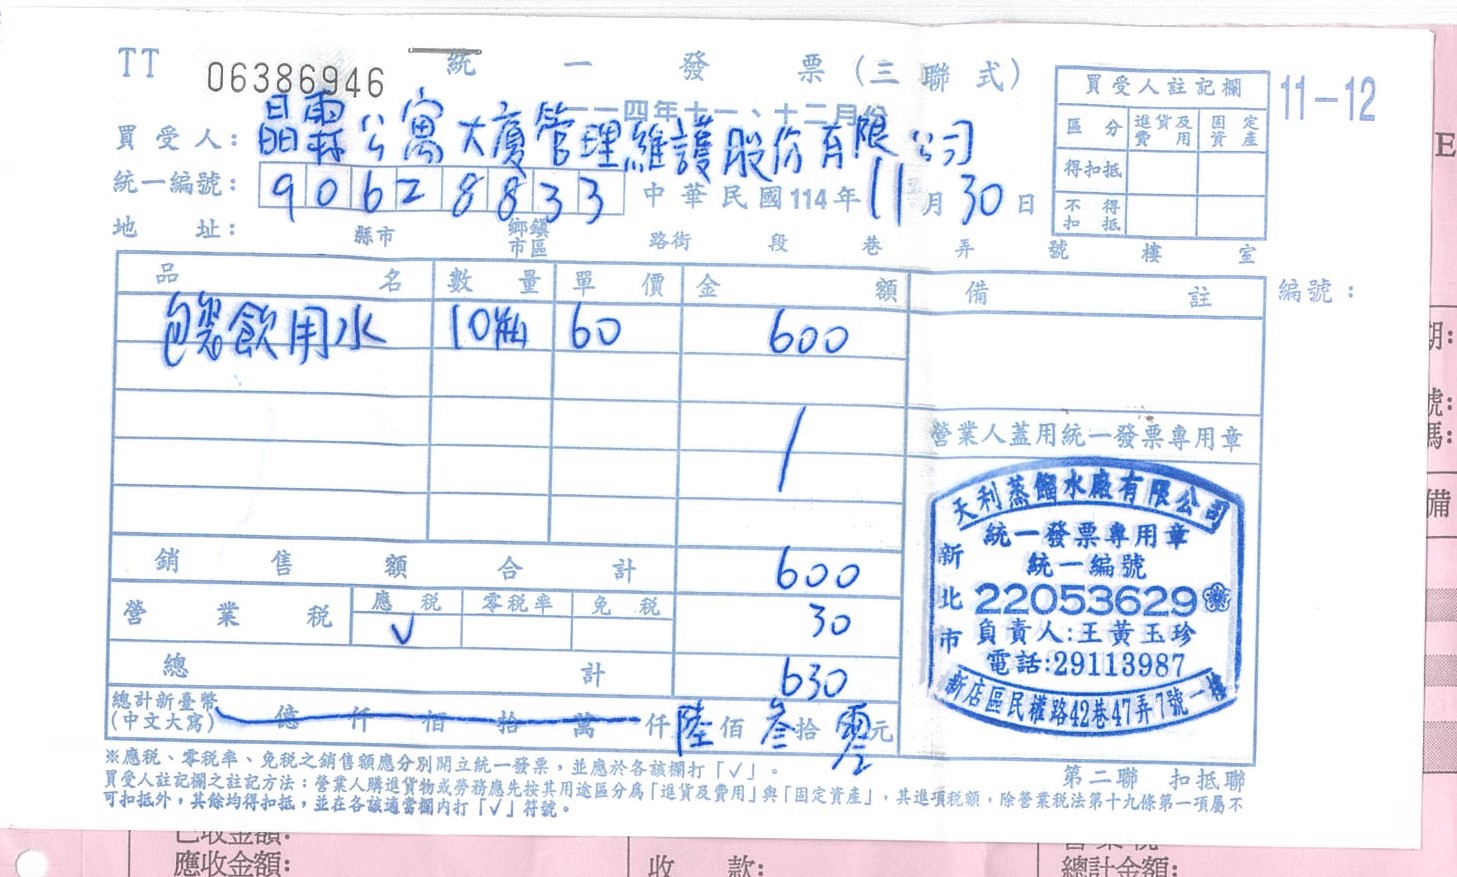 TT 06386946
統一發票(三聯式)
一一四年十一、十二月份
11-12
買受人註記欄
區分 進貨及費用 固定資產
得扣抵
不得扣抵
買受人:晶霖公寓大廈管理維護股份有限公司
統一編號:90628833 中華民國114年11月30日
地址: 縣市 鄉鎮市區 路街 段 巷 弄 號 樓 室
品名 數量 單價 金額 備註 編號:
包裝飲用水 10瓶 60 600
營業人蓋用統一發票專用章
天利蒸餾水廠有限公司
統一發票專用章
統一編號
新北市
22053629
負責人:王黃玉珍
電話:29113987
新店區民權路42巷47弄7號一樓
銷售額合計 600
營業稅 應稅 零稅率 免稅 30
V
總計 630
總計新臺幣
(中文大寫) 億仟佰拾萬仟陸佰叁拾零元
※應稅、零稅率、免稅之銷售額應分別開立統一發票,並應於各該欄打「√」。
第二聯 扣抵聯
買受人註記欄之註記方法:營業人購進貨物或勞務應先按其用途區分為「進貨及費用」與「固定資產」,其進項稅額,除營業稅法第十九條第一項屬不
可扣抵外,其餘均得扣抵,並在各該適當欄內打「√」符號。
E
期:
號:
碼:
備
已收金額:
應收金額:
收款:
營業稅
總計金額: